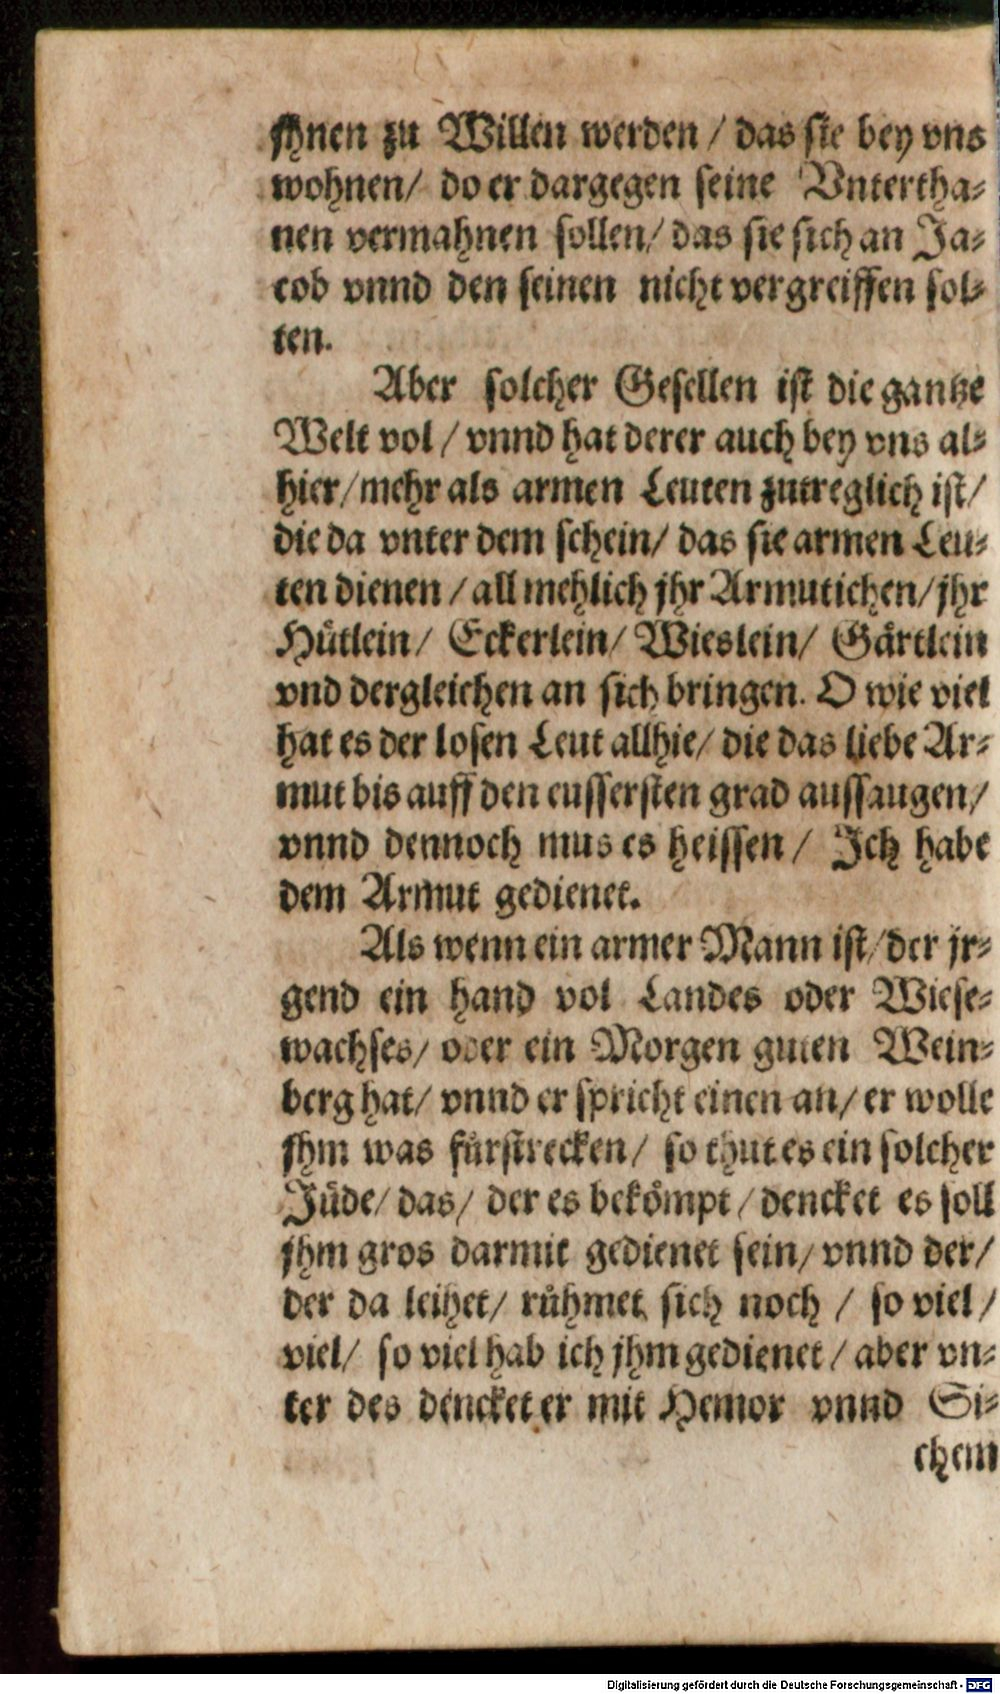 jhnen zu Willen werden / das sie bey vns
wohnen/ do er dargegen seine Vntertha⸗
nen vermahnen sollen/ das sie sich an Ja⸗
cob vnnd den seinen nicht vergreiffen sol⸗
ten.
Aber solcher Gesellen ist die gantze
Welt vol / vnnd hat derer auch bey vns al⸗
hier/mehr als armen Leuten zutreglich ist/
die da vnter dem schein/ das sie armen Leu⸗
ten dienen / all mehlich jhr Armutichen/jhr
Huͤtlein/ Eckerlein/ Wieslein/ Gaͤrtlein
vnd dergleichen an sich bringen. O wie viel
hat es der losen Leut allhie/ die das liebe Ar⸗
mut bis auff den eussersten grad aussaugen/
vnnd dennoch mus es heissen / Ich habe
dem Armut gedienet.
Als wenn ein armer Mann ist/der jr⸗
gend ein hand vol Landes oder Wiese⸗
wachses/ oder ein Morgen guten Wein⸗
berg hat/ vnnd er spricht einen an/ er wolle
jhm was fuͤrstrecken/ so thut es ein solcher
Juͤde/ das/ der es bekoͤmpt / dencket es soll
jhm gros darmit gedienet sein/ vnnd der/
der da leihet/ ruͤhmet sich noch / so viel /
viel/ so viel hab ich jhm gedienet / aber vn⸗
ter des dencket er mit Hemor vnnd Si⸗
chem
Digitalisierung gefördert durch die Deutsche Forschungsgemeinschaft - DFG